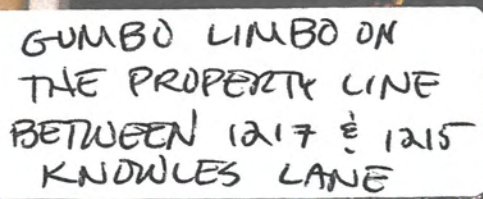 GUMBO LIMBO ON
THE PROPERTY LINE
BETWEEN 1217 & 1215
KNOWLES LANE